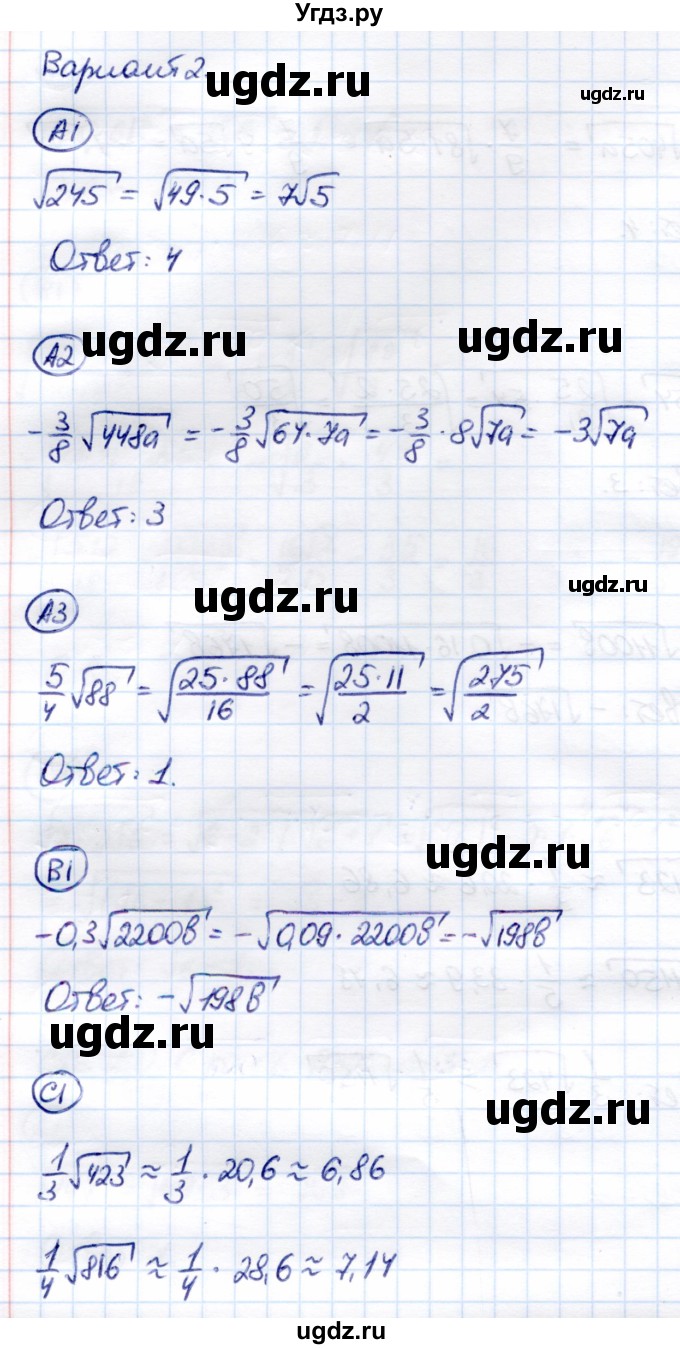 Угдз.ру
Вариант 2.
ugdz.ru
ugdz.ru
A1
√245 = √49·5 = 7√5
Ответ: 4
A2
ugdz.ru
ugdz.ru
-3/8 √448a = -3/8 √64·7a = -3/8 · 8√7a = -3√7a
Ответ: 3
A3
ugdz.ru
ugdz.ru
5/4 √88 = √(25·88/16) = √(25·11/2) = √(275/2)
Ответ: 1.
B1
ugdz.ru
-0,3√2200в = -√0,09·2200в = -√198в
Ответ: -√198в
ugdz.ru
C1
ugdz.ru
1/3 √423 ≈ 1/3 · 20,6 ≈ 6,86
1/4 √816 ≈ 1/4 · 28,6 ≈ 7,14
ugdz.ru